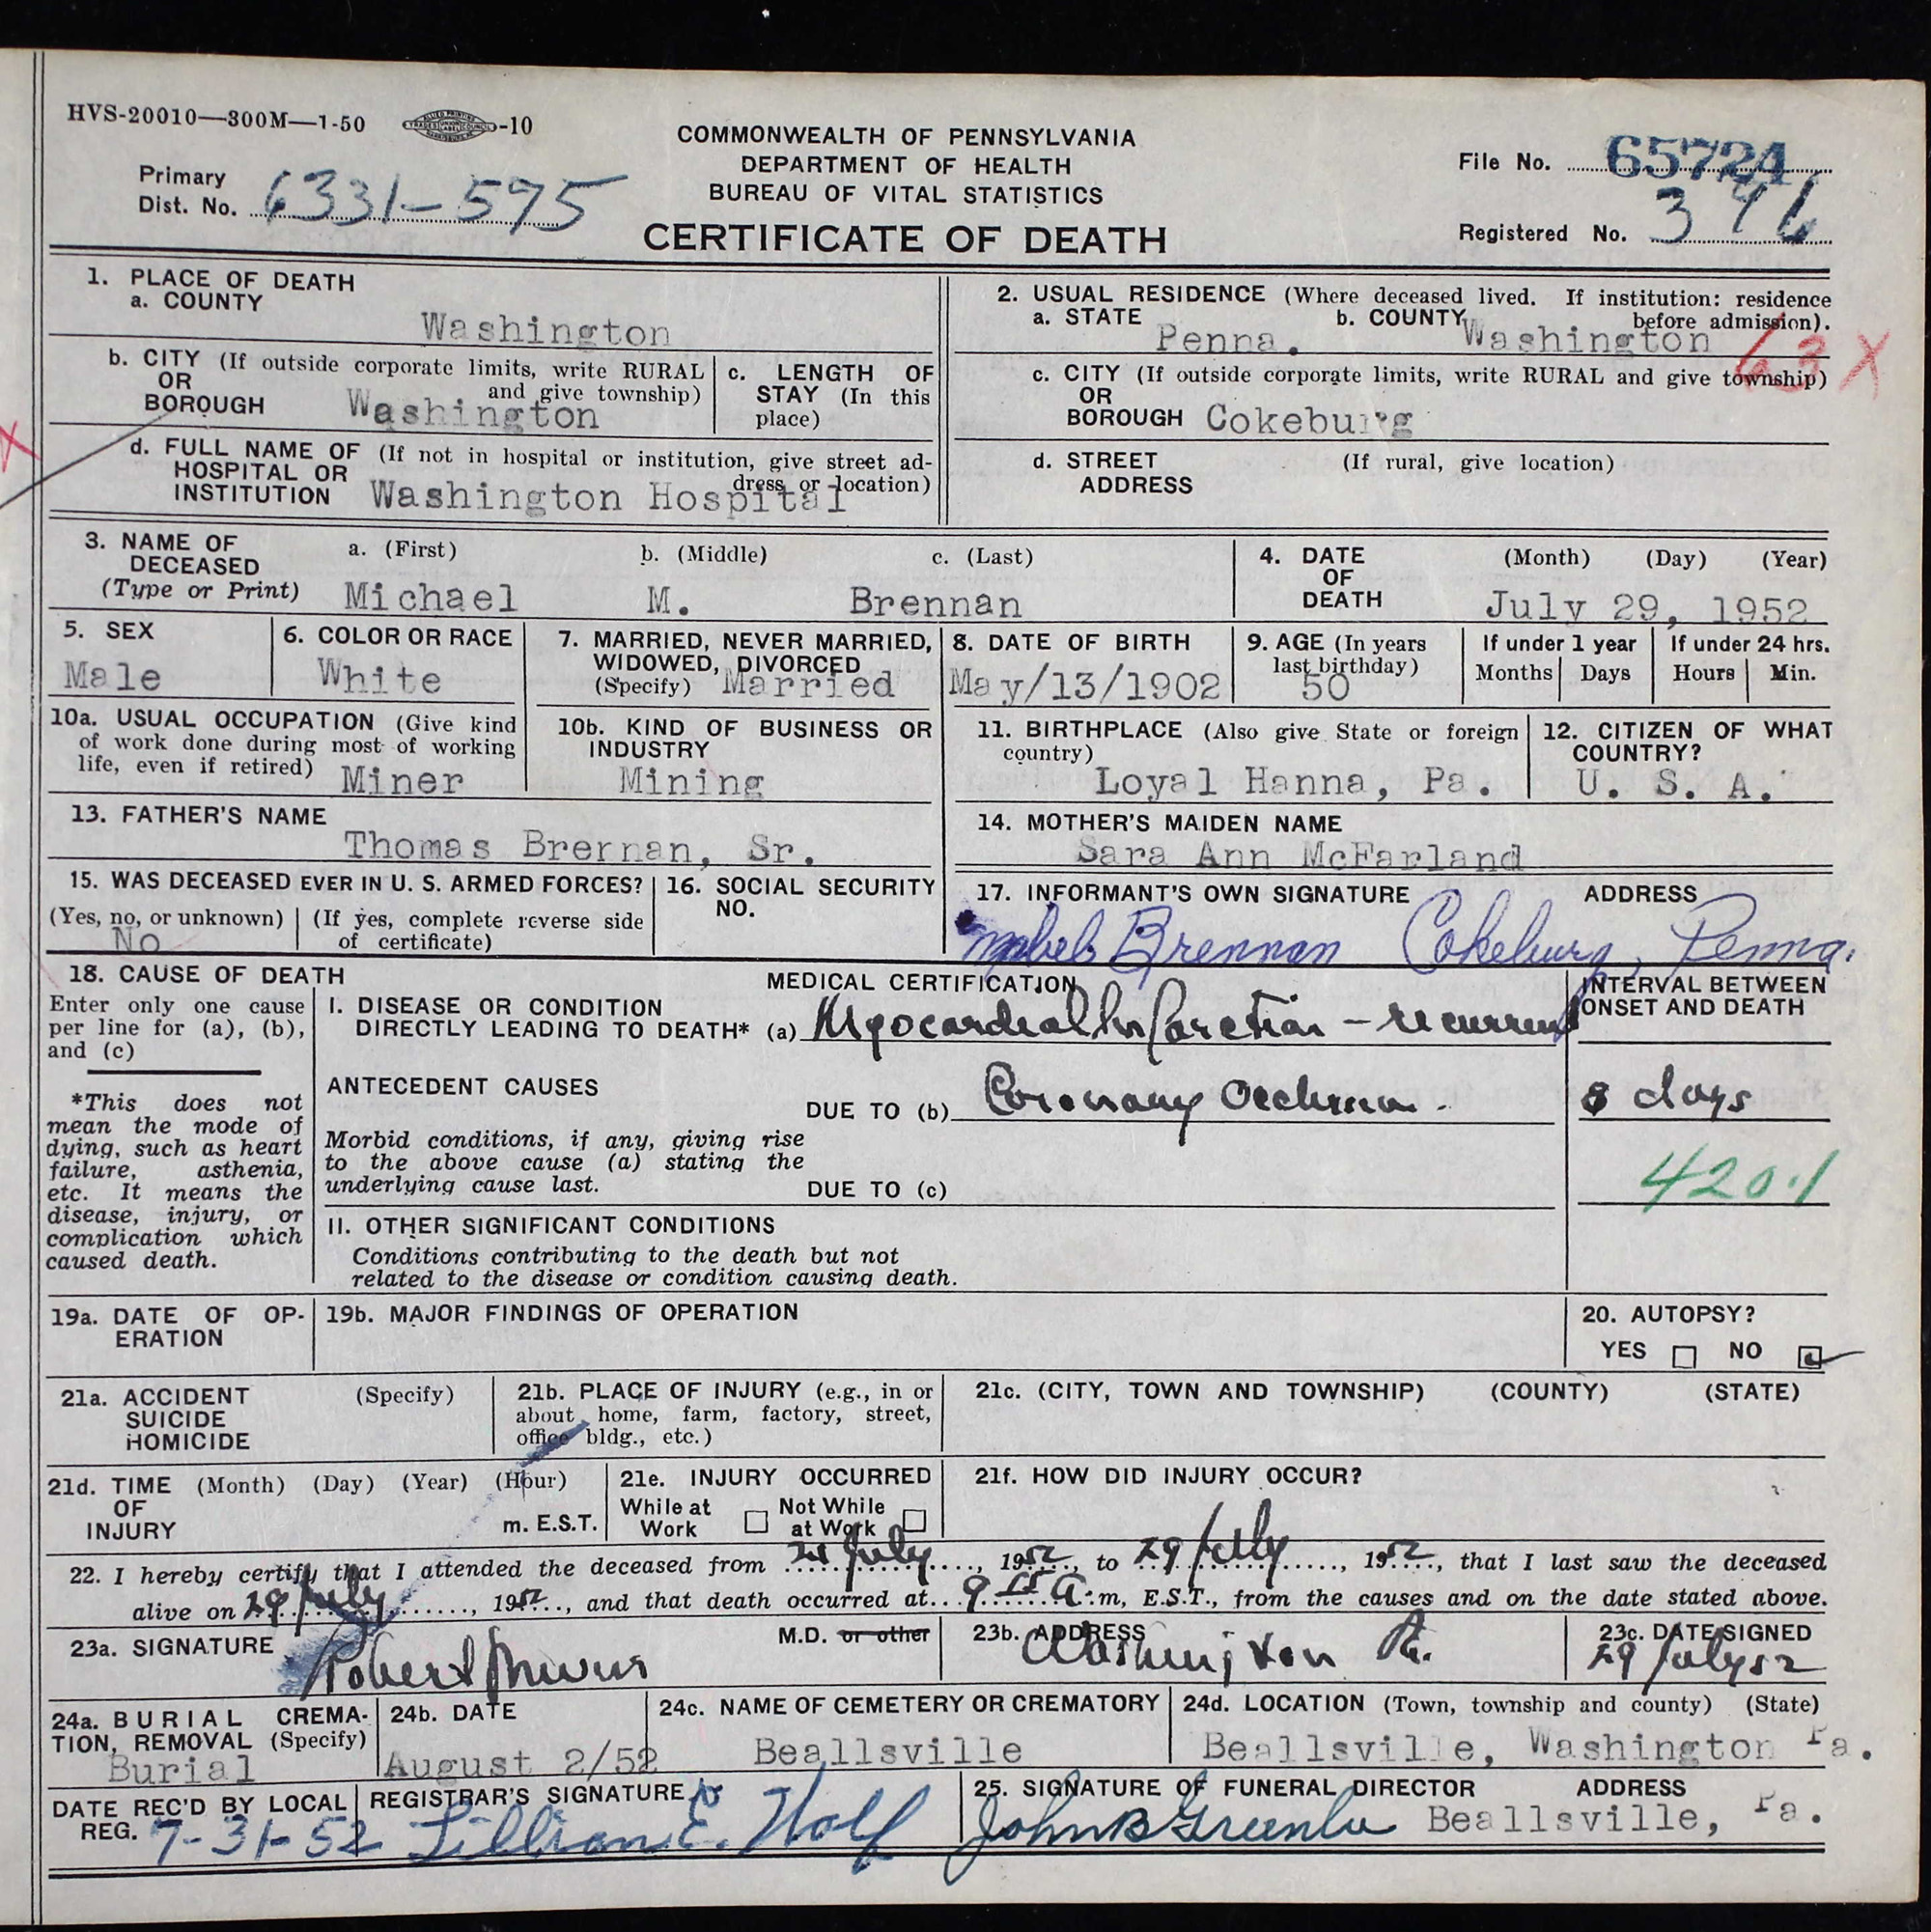 HVS-20010—300M—1-50 -10
COMMONWEALTH OF PENNSYLVANIA
DEPARTMENT OF HEALTH
BUREAU OF VITAL STATISTICS
CERTIFICATE OF DEATH
Primary
Dist. No. 6331-595
File No. 65724
Registered No. 396
1. PLACE OF DEATH
a. COUNTY
Washington
b. CITY (If outside corporate limits, write RURAL
OR and give township)
BOROUGH Washington
c. LENGTH OF
STAY (In this
place)
d. FULL NAME OF (If not in hospital or institution, give street ad-
HOSPITAL OR dress or location)
INSTITUTION Washington Hospital
2. USUAL RESIDENCE (Where deceased lived. If institution: residence
a. STATE b. COUNTY before admission).
Penna. Washington 63 X
c. CITY (If outside corporate limits, write RURAL and give township)
OR
BOROUGH Cokeburg
d. STREET (If rural, give location)
ADDRESS
3. NAME OF a. (First) b. (Middle) c. (Last)
DECEASED
(Type or Print) Michael M. Brennan
4. DATE (Month) (Day) (Year)
OF
DEATH July 29, 1952
5. SEX
Male
6. COLOR OR RACE
White
7. MARRIED, NEVER MARRIED,
WIDOWED, DIVORCED
(Specify) Married
8. DATE OF BIRTH
May/13/1902
9. AGE (In years
last birthday)
50
If under 1 year
Months Days
If under 24 hrs.
Hours Min.
10a. USUAL OCCUPATION (Give kind
of work done during most of working
life, even if retired) Miner
10b. KIND OF BUSINESS OR
INDUSTRY
Mining
11. BIRTHPLACE (Also give State or foreign
country)
Loyal Hanna, Pa.
12. CITIZEN OF WHAT
COUNTRY?
U. S. A.
13. FATHER'S NAME
Thomas Brernan, Sr.
14. MOTHER'S MAIDEN NAME
Sara Ann McFarland
15. WAS DECEASED EVER IN U. S. ARMED FORCES?
(Yes, no, or unknown) (If yes, complete reverse side
No of certificate)
16. SOCIAL SECURITY
NO.
17. INFORMANT'S OWN SIGNATURE ADDRESS
Mabel Brennan Cokeburg, Penna.
18. CAUSE OF DEATH
Enter only one cause
per line for (a), (b),
and (c)
*This does not
mean the mode of
dying, such as heart
failure, asthenia,
etc. It means the
disease, injury, or
complication which
caused death.
MEDICAL CERTIFICATION
I. DISEASE OR CONDITION
DIRECTLY LEADING TO DEATH* (a) Myocardial Infarction - recurrent
ANTECEDENT CAUSES
DUE TO (b) Coronary Occlusion.
Morbid conditions, if any, giving rise
to the above cause (a) stating the
underlying cause last.
DUE TO (c)
II. OTHER SIGNIFICANT CONDITIONS
Conditions contributing to the death but not
related to the disease or condition causing death.
INTERVAL BETWEEN
ONSET AND DEATH
8 days
420.1
19a. DATE OF OP-
ERATION
19b. MAJOR FINDINGS OF OPERATION
20. AUTOPSY?
YES NO
21a. ACCIDENT (Specify)
SUICIDE
HOMICIDE
21b. PLACE OF INJURY (e.g., in or
about home, farm, factory, street,
office bldg., etc.)
21c. (CITY, TOWN AND TOWNSHIP) (COUNTY) (STATE)
21d. TIME (Month) (Day) (Year) (Hour)
OF
INJURY m. E.S.T.
21e. INJURY OCCURRED
While at Work Not While at Work
21f. HOW DID INJURY OCCUR?
22. I hereby certify that I attended the deceased from July, 1952, to 29 July, 1952, that I last saw the deceased
alive on 29 July, 1952, and that death occurred at 9 a.m, E.S.T., from the causes and on the date stated above.
23a. SIGNATURE M.D. or other
Robert
23b. ADDRESS
Washington Pa.
23c. DATE SIGNED
29 July 52
24a. BURIAL CREMA-
TION, REMOVAL (Specify)
Burial
24b. DATE
August 2/52
24c. NAME OF CEMETERY OR CREMATORY
Beallsville
24d. LOCATION (Town, township and county) (State)
Beallsville, Washington Pa.
DATE REC'D BY LOCAL
REG. 7-31-52
REGISTRAR'S SIGNATURE
Lillian E. Wolf
25. SIGNATURE OF FUNERAL DIRECTOR ADDRESS
John B Greenlee Beallsville, Pa.